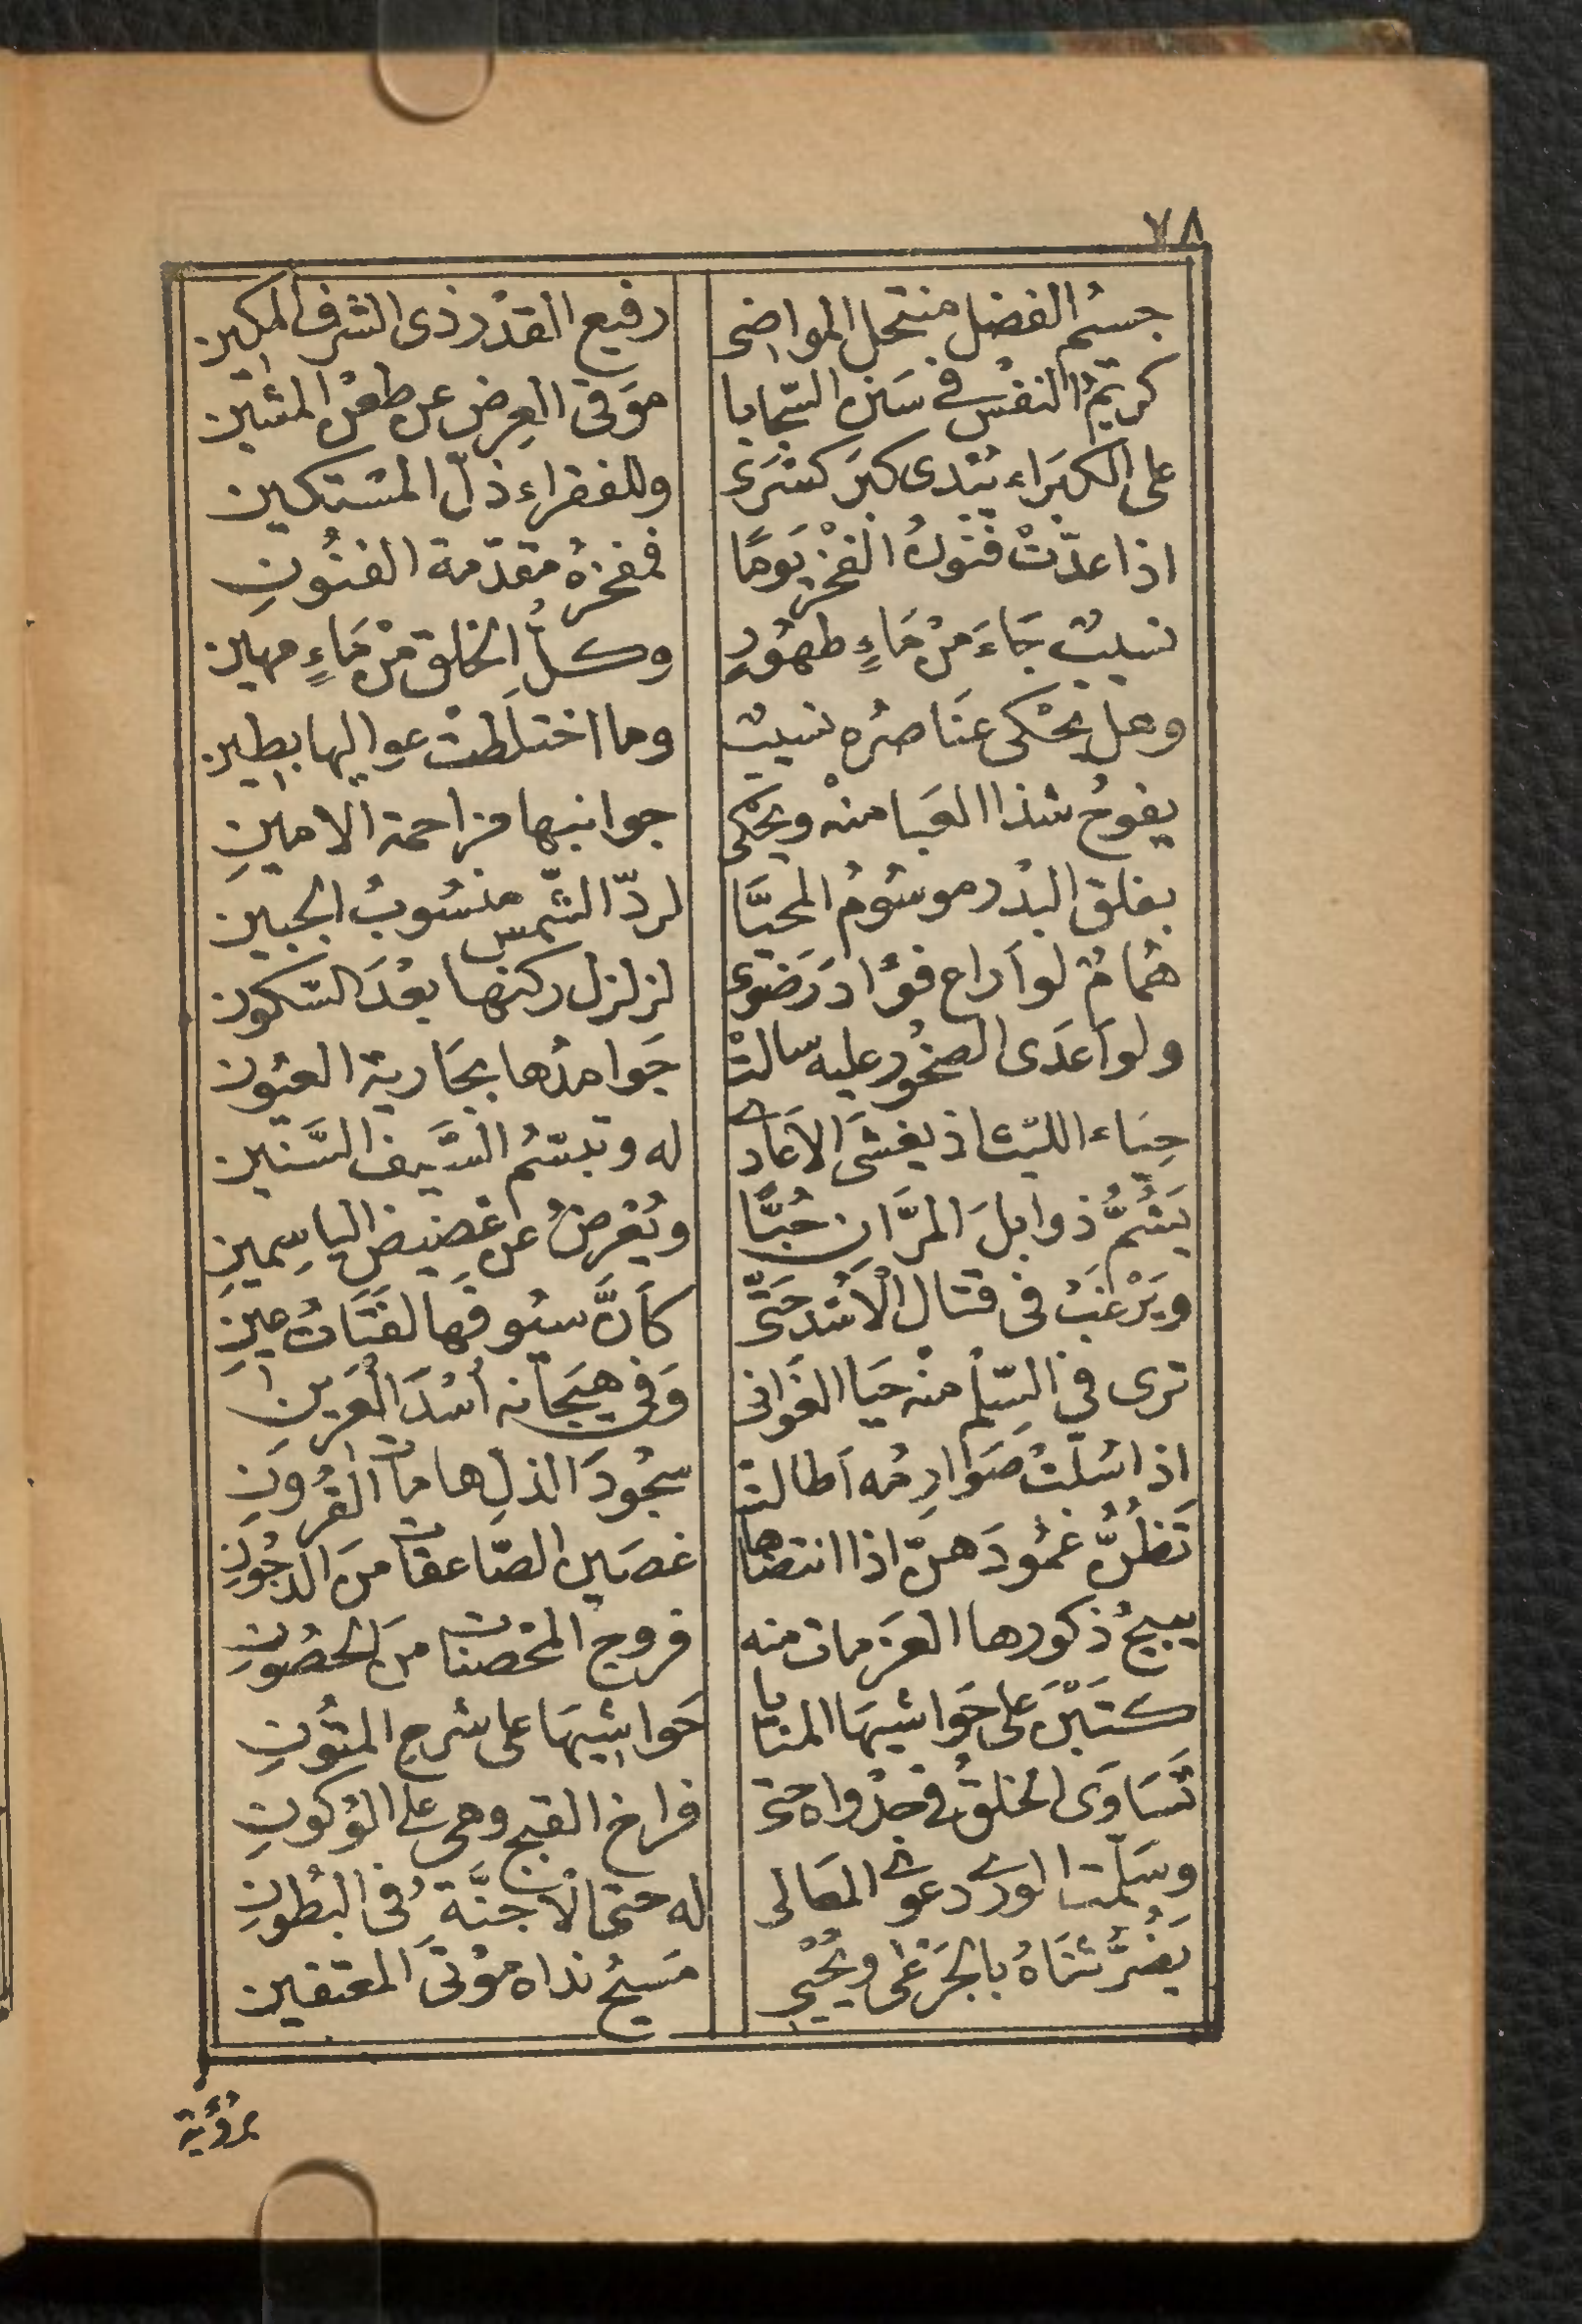 ٧٨
جسيم الفضل منتحل المواضى رفيع القدْر ذى الشرف المكين
كريمُ النفسْ فى سَنن السّجايا موَقى العِرض عن طعْن المشين
على الكبَراء يُبْدى كبرَ كسْرَى وللفقراء ذلّ المسْتكين
اذا عدّتْ فنونُ الفخْر يَومًا فمفخرهُ مقدّمة الفنُونِ
نسيبٌ جَاءَ منْ مَاءٍ طهُورٍ وكلُّ الخلق منْ مَاءٍ مهين
وهل يحْكى عنَاصرُه نسيبٌ وما اختلَطتْ عواليها بطين
يفوحُ شذا العَبا منْه ويحْكى جوانبها مزاحمة الامينِ
بفلق البدْر موسُومُ المحيَّا لردّ الشّمس منسُوبُ الجبين
همَامٌ لو اَراع فؤادَ رَضْوى لزلزل ركنها بعْدَ السّكون
ولو اَعدَى الصخُور عليه سالتْ جَوامدُها بجَارية العيُون
حيَاء الليْث اذ يغشَى الاعَادى له وتبسّمُ السَّيف السَّنين
يَشُمُّ ذوابلَ المرَّان حُبًّا ويُعْرضُ عن غضيض الياسِمينِ
ويَرْغبُ فى قتال الْاُسْد حَتَّى كأنَّ سيُوفها لفتَاتُ عينِ
ترى في السّلْم منْه حيَا الغَوانى وَفى هيجَائه أسْدَ الْعَرين
اذا سُلّتْ صَوارِمُه اَطالت سجُودَ الذلِ هاماتُ القُرُونِ
تَظُنُّ غمُودَهنّ اذا انتضاها غصَبن الصّاعقات منَ الدجُونِ
يبيحُ ذكورها العزمات منه فروج المحْصنات منَ الحصُونِ
كتَبْنَ على حَواشيهَا المنايا حَواشيهَا على شرح المتُونِ
تسَاوَى الخلقُ فى جدْواه حتى فراخ القبج وهى على الوُكونِ
وسَلّمت الورى دعوى المعَالى له حتى الْاجنَّة فى البُطونِ
يَضُرُّ ثنَاهُ بالجَرْحَى ويُحْيى مَسيحُ نداه مَوْتَى المعتفين
برؤية